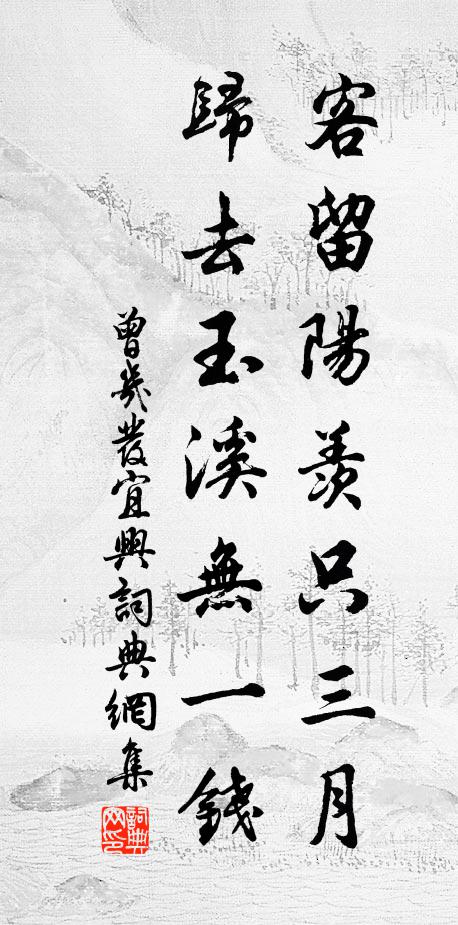 客留陽羨只三月
歸去玉溪無一錢
曾幾發宜興詞典網集
詞典網印